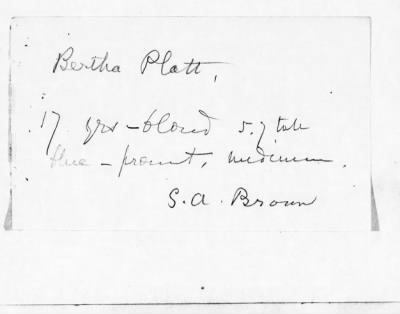 Bertha Platt,
17 yrs - blond 5.7 tall
blue - promt, medium.
S. A. Brown